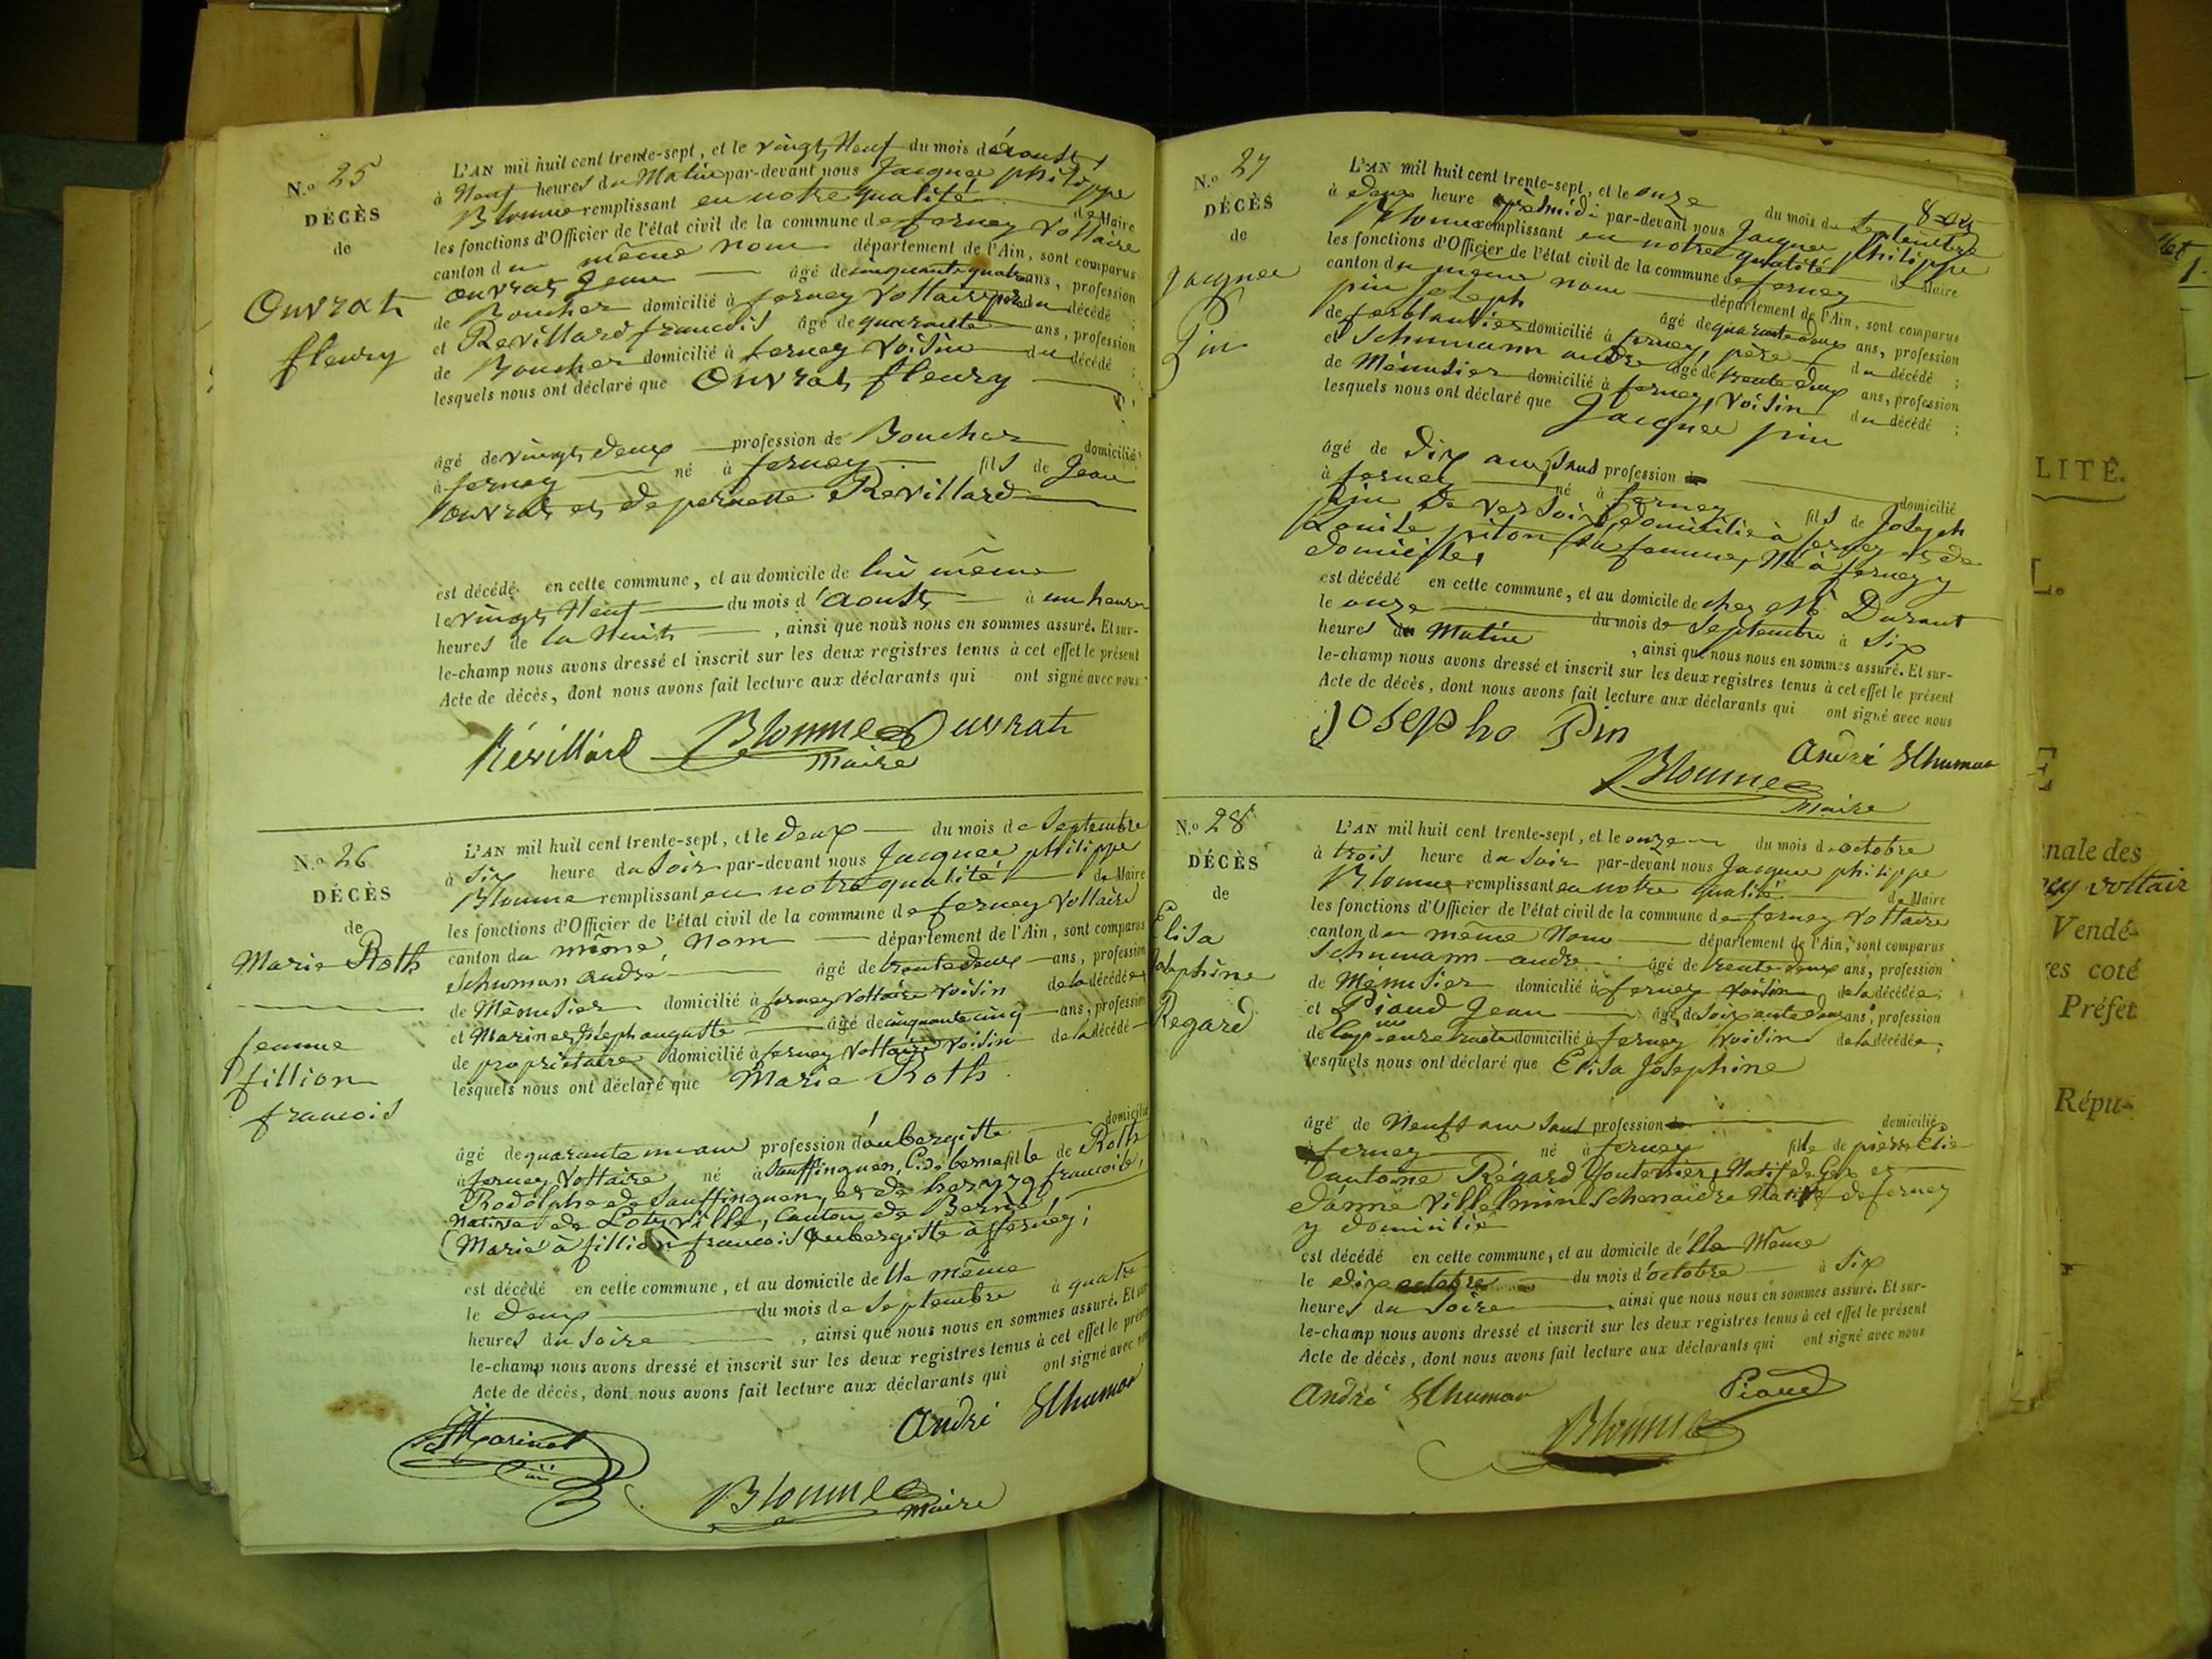 N.º 25
DÉCÈS
de
Ouvrat
fleury
L'AN mil huit cent trente-sept, et le vingt Neuf du mois d'aoust
à Neuf heures du Matin par-devant nous Jacques philippe
Blonme remplissant en notre qualité de Maire
les fonctions d'Officier de l'état civil de la commune de ferney Voltaire
canton du même nom département de l'Ain, sont comparus
ouvrat Jean âgé de cinquante quatre ans, profession
de Boucher domicilié à ferney Voltaire père du décédé ;
et Revillard francois âgé de quarante ans, profession
de Boucher domicilié à ferney Voisin du décédé ;
lesquels nous ont déclaré que Ouvrat fleury
âgé de vingt deux profession de Boucher domicilié
à ferney né à ferney fils de Jean
ouvrat et de pernette Revillard
est décédé en cette commune, et au domicile de lui même
le vingt Neuf du mois d'aoust à un heure
heures de la Nuit , ainsi que nous nous en sommes assuré. Et sur-
le-champ nous avons dressé et inscrit sur les deux registres tenus à cet effet le présent
Acte de décès, dont nous avons fait lecture aux déclarants qui ont signé avec nous
Révillard Blonme Ouvrat
Maire
N.º 26
DÉCÈS
de
Marie Roth
femme
fillion
francois
L'AN mil huit cent trente-sept, et le deux du mois de Septembre
à Six heure du Soir par-devant nous Jacques philippe
Blonme remplissant en notre qualité de Maire
les fonctions d'Officier de l'état civil de la commune de ferney Voltaire
canton du même nom département de l'Ain, sont comparus
Schuman andré âgé de trente deux ans, profession
de Ménusier domicilié à ferney Voltaire voisin de la décédée
et Marinet Joseph auguste âgé de cinquante cinq ans, profession
de propriétaire domicilié à ferney Voltaire voisin de la décédé
lesquels nous ont déclaré que Marie Roth
âgé de quarante un ans profession d'aubergiste domicilié
à ferney Voltaire né à fille de Roth
Rodolphe de et de francoise,
native de ville, Canton de Berne
(Marié à fillion francois aubergiste à ferney;
est décédé en cette commune, et au domicile de lle même
le deux du mois de Septembre à quatre
heures du Soire , ainsi que nous nous en sommes assuré. Et sur
le-champ nous avons dressé et inscrit sur les deux registres tenus à cet effet le présent
Acte de décès, dont nous avons fait lecture aux déclarants qui ont signé avec nous
Marinet André Shuman
Blonme
Maire
N.º 27
DÉCÈS
de
Jacques
Pin
L'AN mil huit cent trente-sept, et le onze du mois de Septembre
à deux heure aprèsmidi par-devant nous Jacques philippe
Blonme remplissant en notre qualité de Maire
les fonctions d'Officier de l'état civil de la commune de ferney
canton du même nom département de l'Ain, sont comparus
pin Joseph âgé de quarante deux ans, profession
de ferblantier domicilié à ferney, père du décédé ;
et Schumann andre âgé de trente deux ans, profession
de Ménusier domicilié à ferney, voisin du décédé ;
lesquels nous ont déclaré que Jacques pin
âgé de dix ans, sans profession domicilié
à ferney né à ferney fils de Joseph
pin De Versoix, domicilié à ferney et de
Louise piton sa femme, Né à ferney y
domiciliés
est décédé en cette commune, et au domicile de chez Durant
le onze du mois de Septembre à Six
heures du Matin , ainsi que nous nous en sommes assuré. Et sur-
le-champ nous avons dressé et inscrit sur les deux registres tenus à cet effet le présent
Acte de décès, dont nous avons fait lecture aux déclarants qui ont signé avec nous
Josepho Pin
André Shuman
Blonme
Maire
N.º 28
DÉCÈS
de
Elisa
Josephine
Regard
L'AN mil huit cent trente-sept, et le onze du mois d'octobre
à trois heure du Soir par-devant nous Jacques philippe
Blonme remplissant en notre qualité de Maire
les fonctions d'Officier de l'état civil de la commune de ferney Voltaire
canton du même Nom département de l'Ain, sont comparus
Schumann andre âgé de trente deux ans, profession
de Ménusier domicilié à ferney voisin de la décédée;
et Piaud Jean âgé de Soixante deux ans, profession
de domicilié à ferney voisin de la décédée;
lesquels nous ont déclaré que Elisa Josephine
âgé de Neufs ans Sans profession domicilié
à ferney né à ferney fille de pierre Elie
antoine Régard Natif de Gex et
d'anne Villelmine Schenaidre Native de ferney
y domicilié
est décédé en cette commune, et au domicile de lle Même
le dix du mois d'octobre à Six
heures du Soire , ainsi que nous nous en sommes assuré. Et sur-
le-champ nous avons dressé et inscrit sur les deux registres tenus à cet effet le présent
Acte de décès, dont nous avons fait lecture aux déclarants qui ont signé avec nous
André Shuman Piaud
Blonme
LITÉ.
L.
E
nale des
ney voltair
Vendé-
res coté
Préfet
Répu-